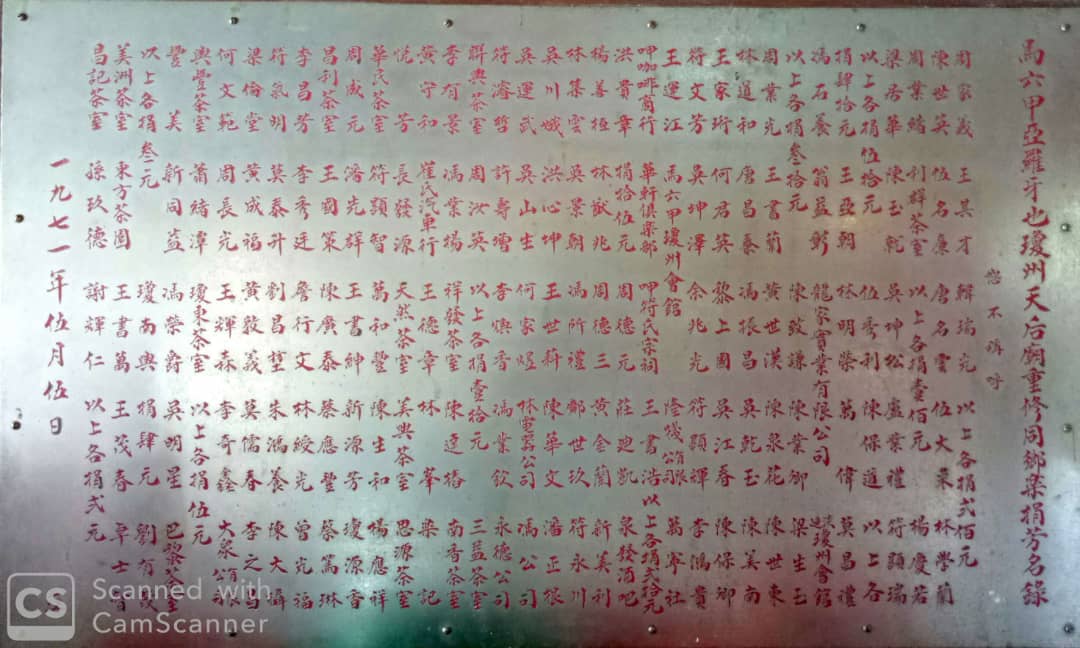 馬六甲亞羅牙也瓊州天后廟重修同鄉樂捐芳名錄
恕不稱呼
周家義 王具才 韓瑞元 以上各捐弍佰元
陳世英 伍名廉 唐名雲 伍大業 林學蘭
周業緒 利群茶室 以上各捐壹佰元 楊慶若
梁居華 陳玉乾 吳坤松 盧業禮 符顯瑞
以上各捐伍拾元 伍秀利 陳保道 以上各
捐肆拾元 王亞朝 林明榮 萬偉 莫昌禮
馮石養 翁益豹 龍家實業有限公司 瓊州會館
以上各捐叁拾元 陳致謙 陳業卿 梁生玉
周業光 王書蔔 黃世漢 陳泉花 陳世東
林道和 唐昌泰 馮振昌 吳乾玉 陳美南
王家珩 何君英 黎上國 吳江春 陳保卿
符文芳 吳坤澤 佘兆光 符顯輝 李鴻貴
王運江 馬六甲瓊州會館 隆棧 萬寧社
呷咖啡商行 華軒俱樂部 呷符氏宗祠 王書浩 以上各捐弍拾元
洪貴章 捐拾伍元 周德元 莊迎凱 泉發酒吧
楊善恒 林猷兆 周德三 黃金蘭 新美利
林集雲 吳景朝 馮所禮 鄺世玖 符永川
吳川娥 洪心坤 王世 陳華文 潘正銀
吳運武 吳山生 何家煜 林電器公司 馮公司
符濬哲 許壽增 李煥香 馮業欽 永德公司
群興茶室 周汝英 以上各捐壹拾元 三益茶室
李有景 馮業揚 祥發茶室 陳達椿 南香茶室
黃守和 崔氏汽車行 王德章 林峯 樂記
悅芳 長發源 天然茶室 美興茶室 思源茶室
華民茶室 符顯智 萬和豐 陳生和 楊應祥
周成元 潘先群 王書紳 新源芳 瓊源香
昌利茶室 王國策 陳廣泰 蔡應豐 蔡篤琳
李昌芳 李秀廷 詹行文 林綬光 曾光福
符氣明 莫泰升 劉昌堃 朱鴻森 陳大
梁倫堂 黃成福 黃敦義 莫儒養 李之
何文範 周長光 王輝森 李奇鑫
興豐茶室 蕭緒潭 瓊東茶室 以上各捐伍元
豐美 新同益 馮榮爵 吳明星 巴黎
以上各捐叁元 瓊南興 捐肆元 劉有
美洲茶室 東方茶園 王書萬 王茂春 卓士
昌記茶室 孫玖德 謝輝仁 以上各捐弍元
一九七一年伍月伍日
CS Scanned with
CamScanner